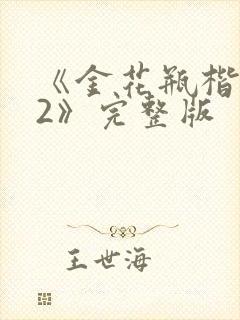 《金花瓶楷
2》完整版
王世海